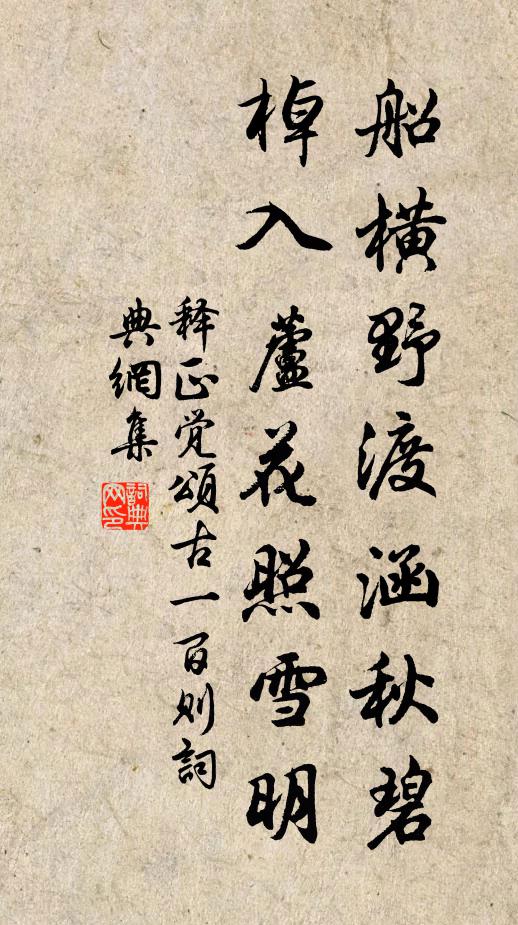 船横野渡涵秋碧
棹入蘆花照雪明
释正觉頌古一百则詞
典網集
詞典
网印